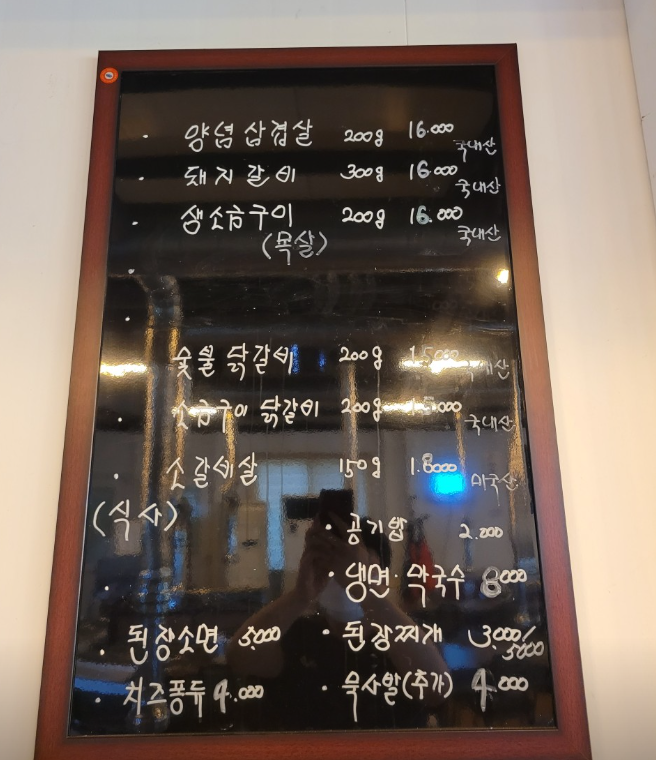 양념삼겹살 200g 16.000 국내산
돼지갈비 300g 16.000 국내산
생소금구이 200g 16.000 국내산
(목살)
숯불닭갈비 200g 15000 국내산
소금구이 닭갈비 200g 15000 국내산
소갈비살 150g 18000 미국산
(식사)
공기밥 2.000
냉면·막국수 8000
된장소면 5.000 된장찌개 3.000/5000
치즈퐁듀 4.000 묵사발(추가) 4.000